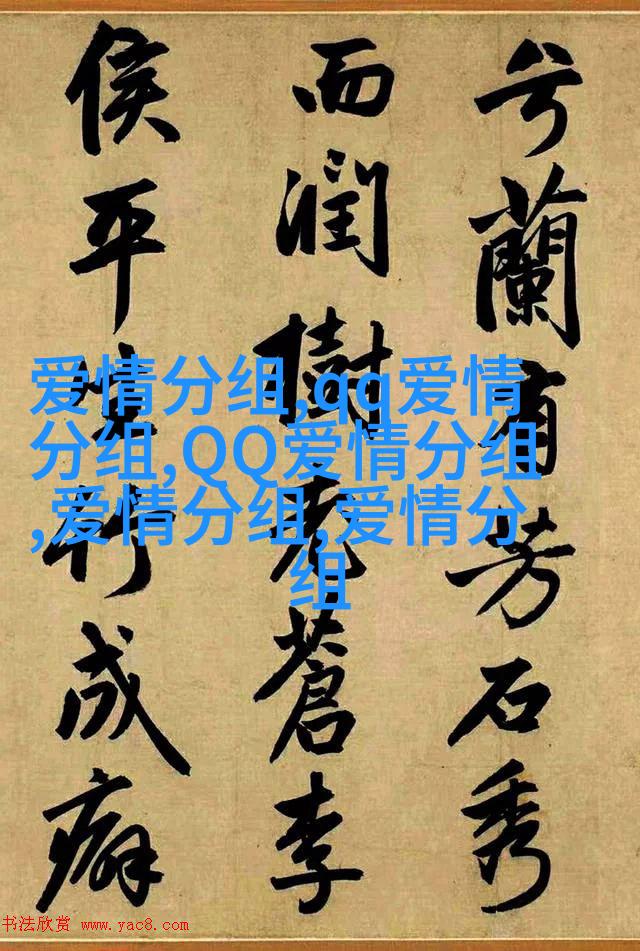 兮蘭有芳石秀
而潤樹老蒼李
侯平生竹成癖
爱情分组,qq爱情
分组,QQ爱情分组
,爱情分组,爱情分
组
书法欣赏 www.yac8.com